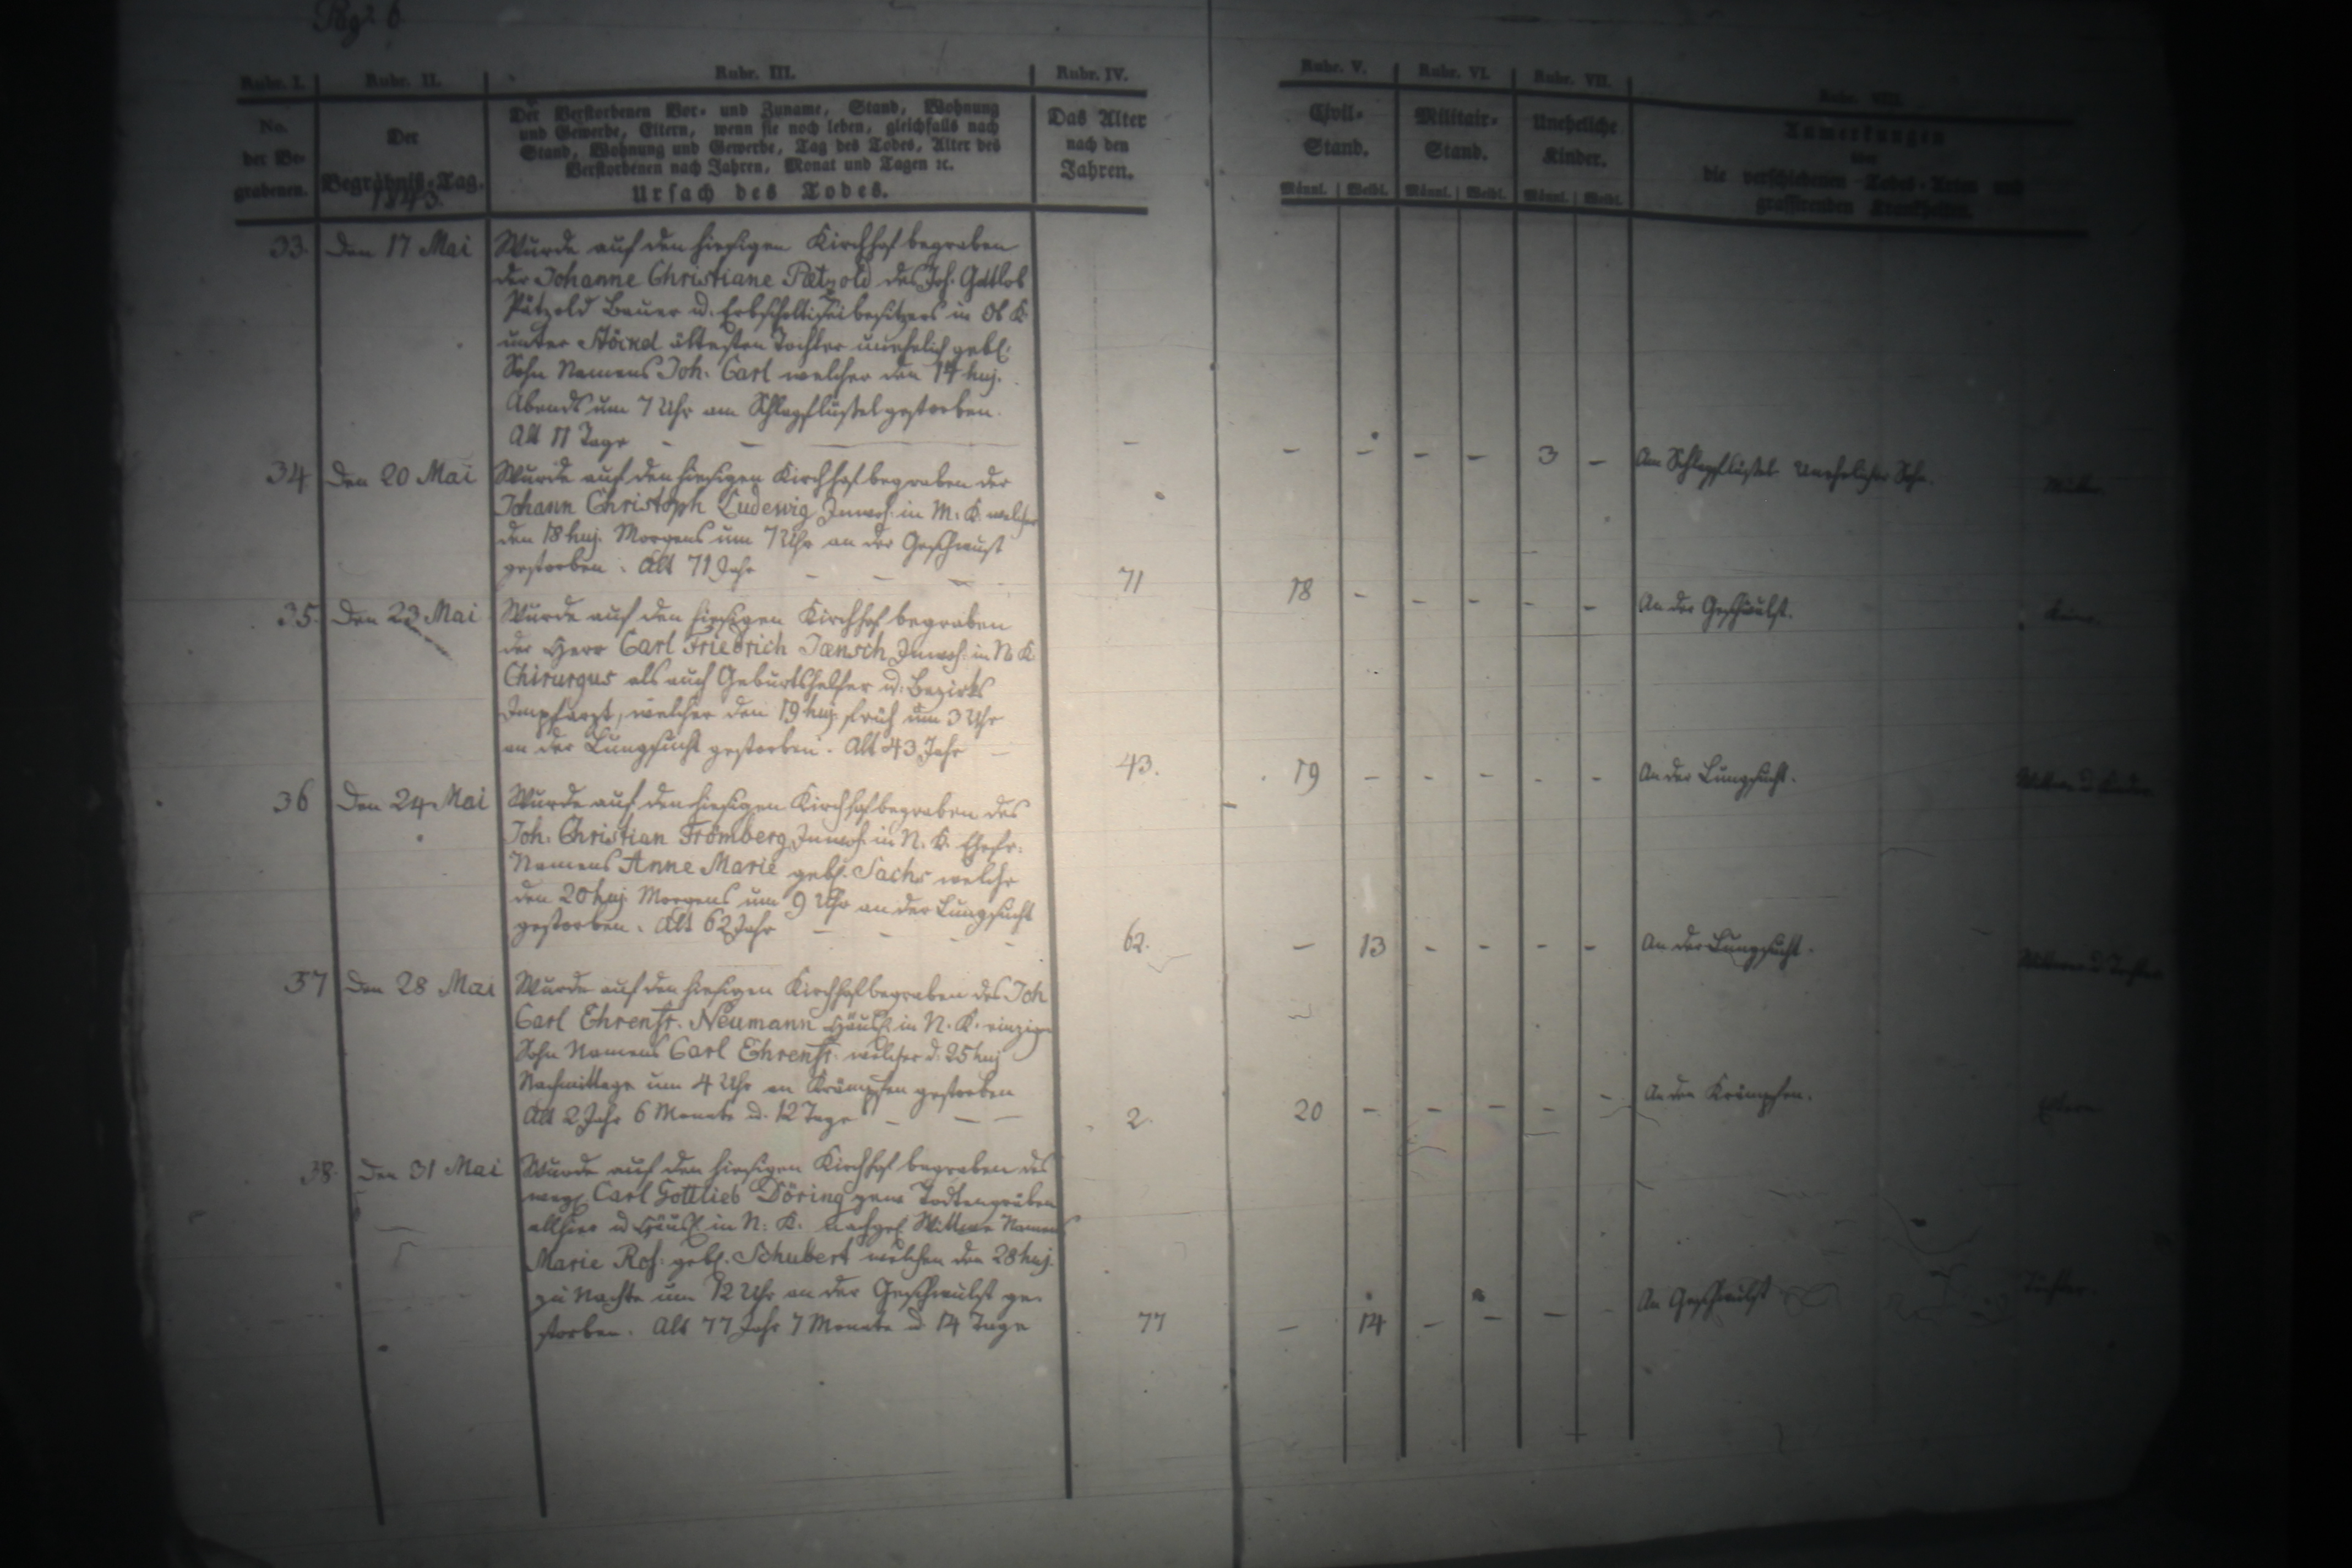 Pag. 6
Rubr. I. Rubr. II. Rubr. III. Rubr. IV. Rubr. V. Rubr. VI. Rubr. VII. Rubr. VIII.
No. der Be- grabenen.
Der Begräbniß-Tag. 1843.
Der Verstorbenen Vor- und Zuname, Stand, Wohnung
und Gewerbe, Eltern, wenn sie noch leben, gleichfalls nach
Stand, Wohnung und Gewerbe, Tag des Todes, Alter des
Verstorbenen nach Jahren, Monat und Tagen ꝛc.
Ursach des Todes.
Das Alter nach den Jahren.
Civil- Stand.
Militair- Stand.
Uneheliche Kinder.
Männl. Weibl. Männl. Weibl. Männl. Weibl.
Anmerkungen
über
die verschiedenen Todes-Arten und
grassirenden Krankheiten.
33. Den 17 Mai Wurde auf den hiesigen Kirchhof begraben
der Johanne Christiane Pætzold des Joh. Gottlob
Pätzold Bauer u. Erbscholtiseibesitzers in Ob K.
unter ältesten Tochter unehelich gebl:
Sohn Namens Joh. Carl welcher den 14 huj.
Abends um 7 Uhr am Schlagflüssel gestorben.
Alt 11 Tage - - - - - - - 3 - Am Schlagflüssel Unehelicher Sohn. Mutter.
34 Den 20 Mai Wurde auf den hiesigen Kirchhof begraben der
Johann Christoph Ludewig Inwoh: in M. K. welcher
den 18 huj. Morgens um 7 Uhr an der Geschwust
gestorben. Alt 71 Jahr - - - 71 18 - - - - - An der Geschwulst. Keine.
35. Den 23 Mai Wurde auf den hiesigen Kirchhof begraben
der Herr Carl Friedrich Jænsch Inwoh: in N. K
Chirurgus als auch Geburtshelfer u. Bezirks
Impfarzt, welcher den 19 huj. früh um 3 Uhr
an der Lungsucht gestorben. Alt 43 Jahr - 43. 19 - - - - - An der Lungsucht.
36 Den 24 Mai Wurde auf den hiesigen Kirchhof begraben des
Joh. Christian Frömberg Inwoh: in N. K. Ehefr:
Namens Anne Marie gebl. Sachs welche
den 20 huj. Morgens um 9 Uhr an der Lungsucht
gestorben. Alt 62 Jahr - - - - 62. - 13 - - - - An der Lungsucht.
37 Den 28 Mai Wurde auf den hiesigen Kirchhof begraben des Joh
Carl Ehrenfr. Neumann Häusl. in N. K. einziger
Sohn Namens Carl Ehrenfr: welcher d. 25 huj
Nachmittags um 4 Uhr an Krämpfen gestorben
Alt 2 Jahr 6 Monate u. 12 Tage - - - 2. 20 - - - - - An den Krämpfen. Eltern
38. Den 31 Mai Wurde auf den hiesigen Kirchhof begraben des
Carl Gottlieb Döring gew. Todtengräber
allhier u Häusl. in N. K. nachgel Wittwe Namens
Marie Ros: gebl. Schubert welchen den 28 huj.
zu Nachte um 12 Uhr an der Geschwulst ge-
storben. Alt 77 Jahr 7 Monate u 14 Tage 77 - 14 - - - - An Geschwulst Tochter.